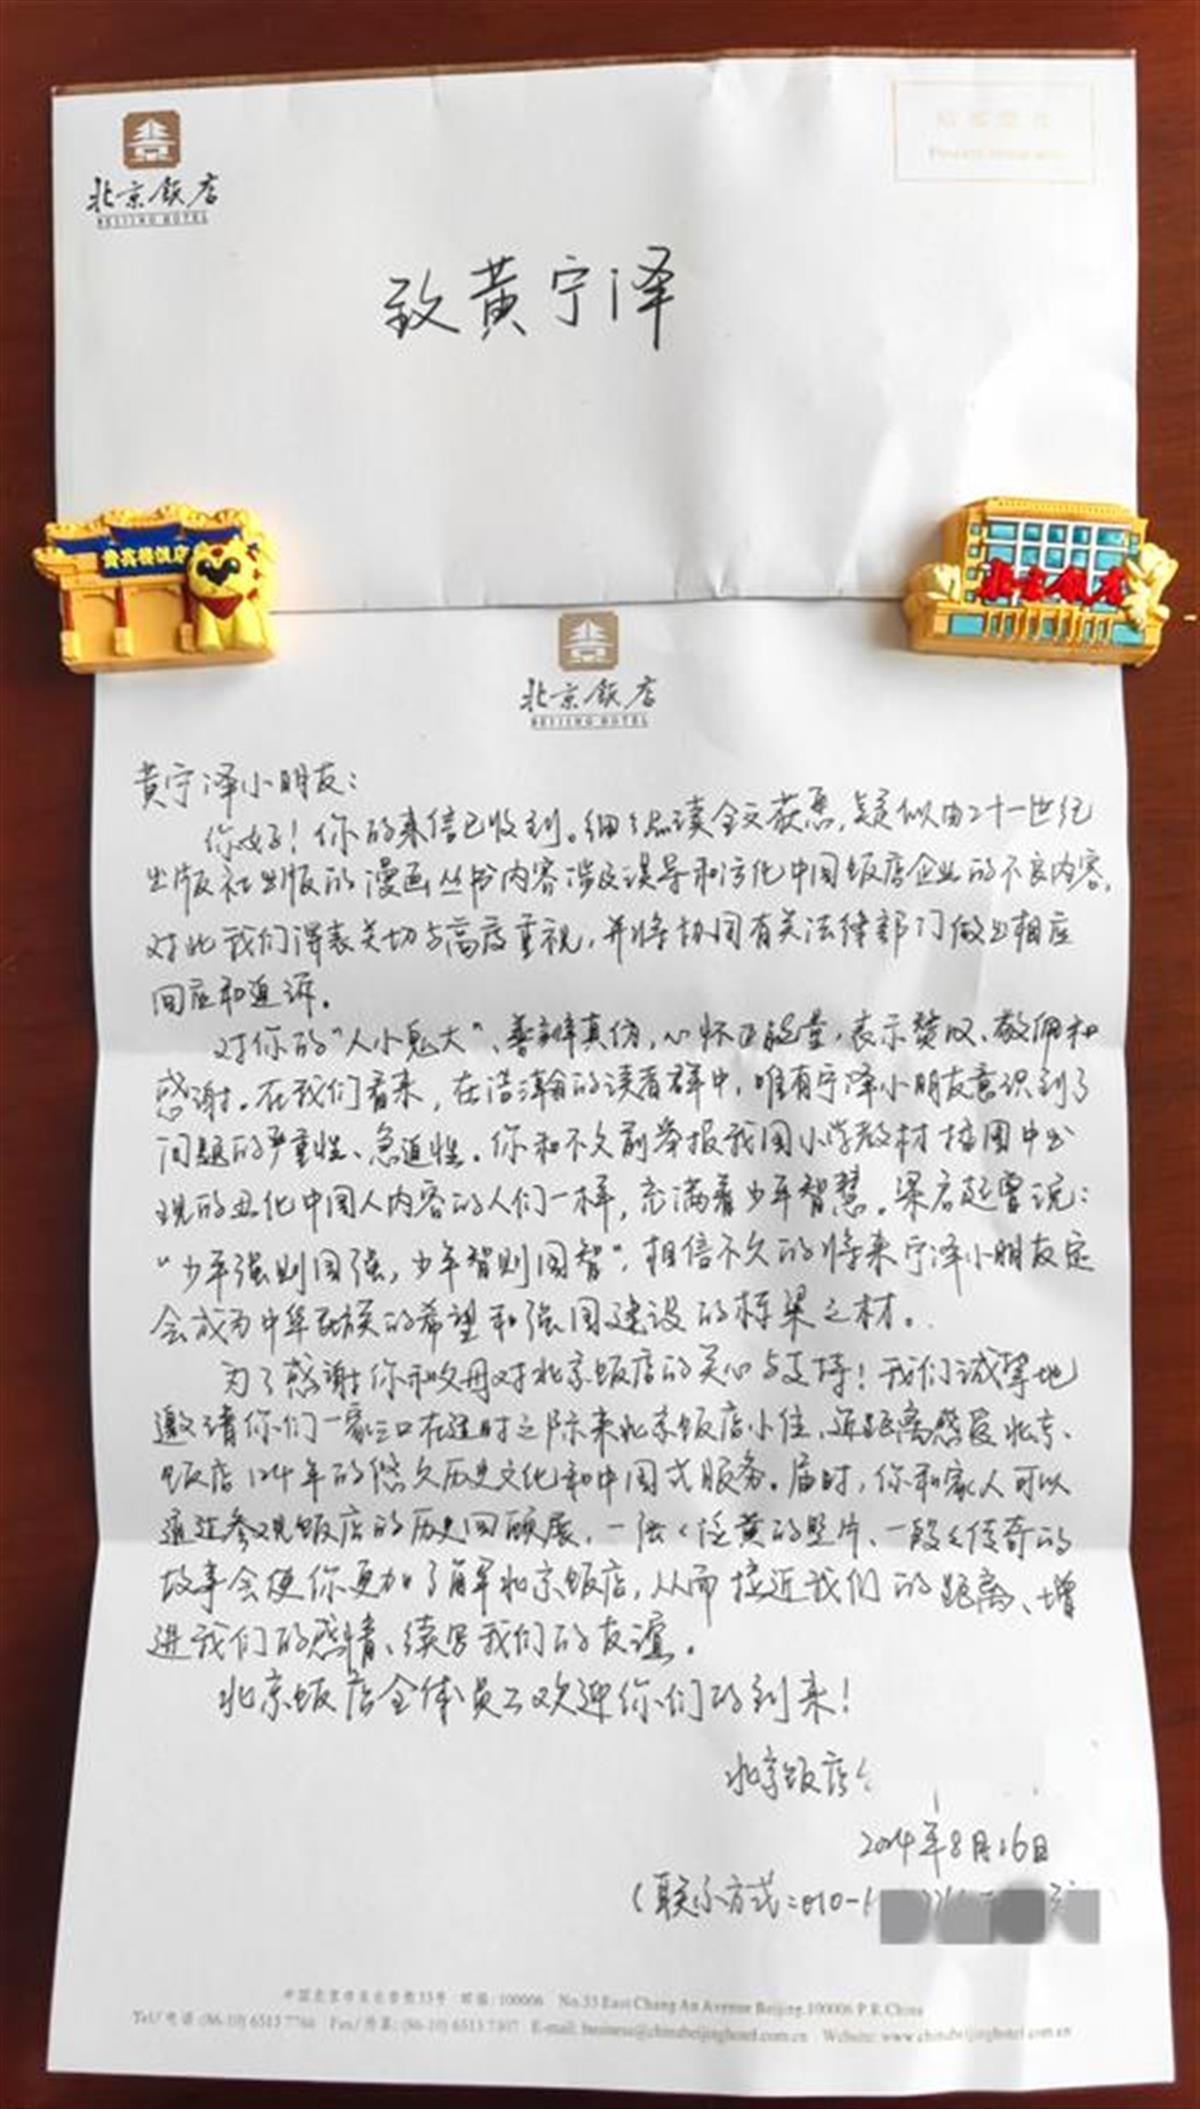 北京饭店
BEIJING HOTEL
致黄宁泽
贵宾楼饭店
北京饭店
北京饭店
BEIJING HOTEL
黄宁泽小朋友：
你好！你的来信已收到。细细品读全文获悉，疑似由二十一世纪
出版社出版的漫画丛书内容涉及误导和污化中国饭店企业的不良内容，
对此我们深表关切与高度重视，并将协同有关法律部门做出相应
回应和追诉。
对你的“人小鬼大”、善辨真伪，心怀正能量，表示赞叹、敬佩和
感谢。在我们看来，在浩瀚的读者群中，唯有宁泽小朋友意识到了
问题的严重性、急迫性。你和不久前举报我国小学教材插图中出
现的丑化中国人内容的人们一样，充满着少年智慧。梁启超曾说：
“少年强则国强，少年智则国智”，相信不久的将来宁泽小朋友定
会成为中华民族的希望和强国建设的栋梁之材。
为了感谢你和父母对北京饭店的关心与支持！我们诚挚地
邀请你们一家三口在适时之际来北京饭店小住，近距离感受北京
饭店124年的悠久历史文化和中国式服务。届时，你和家人可以
通过参观饭店的历史回顾展，一张张泛黄的照片、一段段传奇的
故事会使你更加了解北京饭店，从而拉近我们的距离、增
进我们的感情、续写我们的友谊。
北京饭店全体员工欢迎你们的到来！
北京饭店
2024年8月16日
（联系方式：010-
中国北京市东长安街33号 邮编：100006 No.33 East Chang An Avenue Beijing.100006 P.R.China
Tel/电话:(86-10) 6513 7766 Fax/传真:(86-10) 6513 7307 E-mail: business@chinabeijinghotel.com.cn Website: www.chinabeijinghotel.com.cn